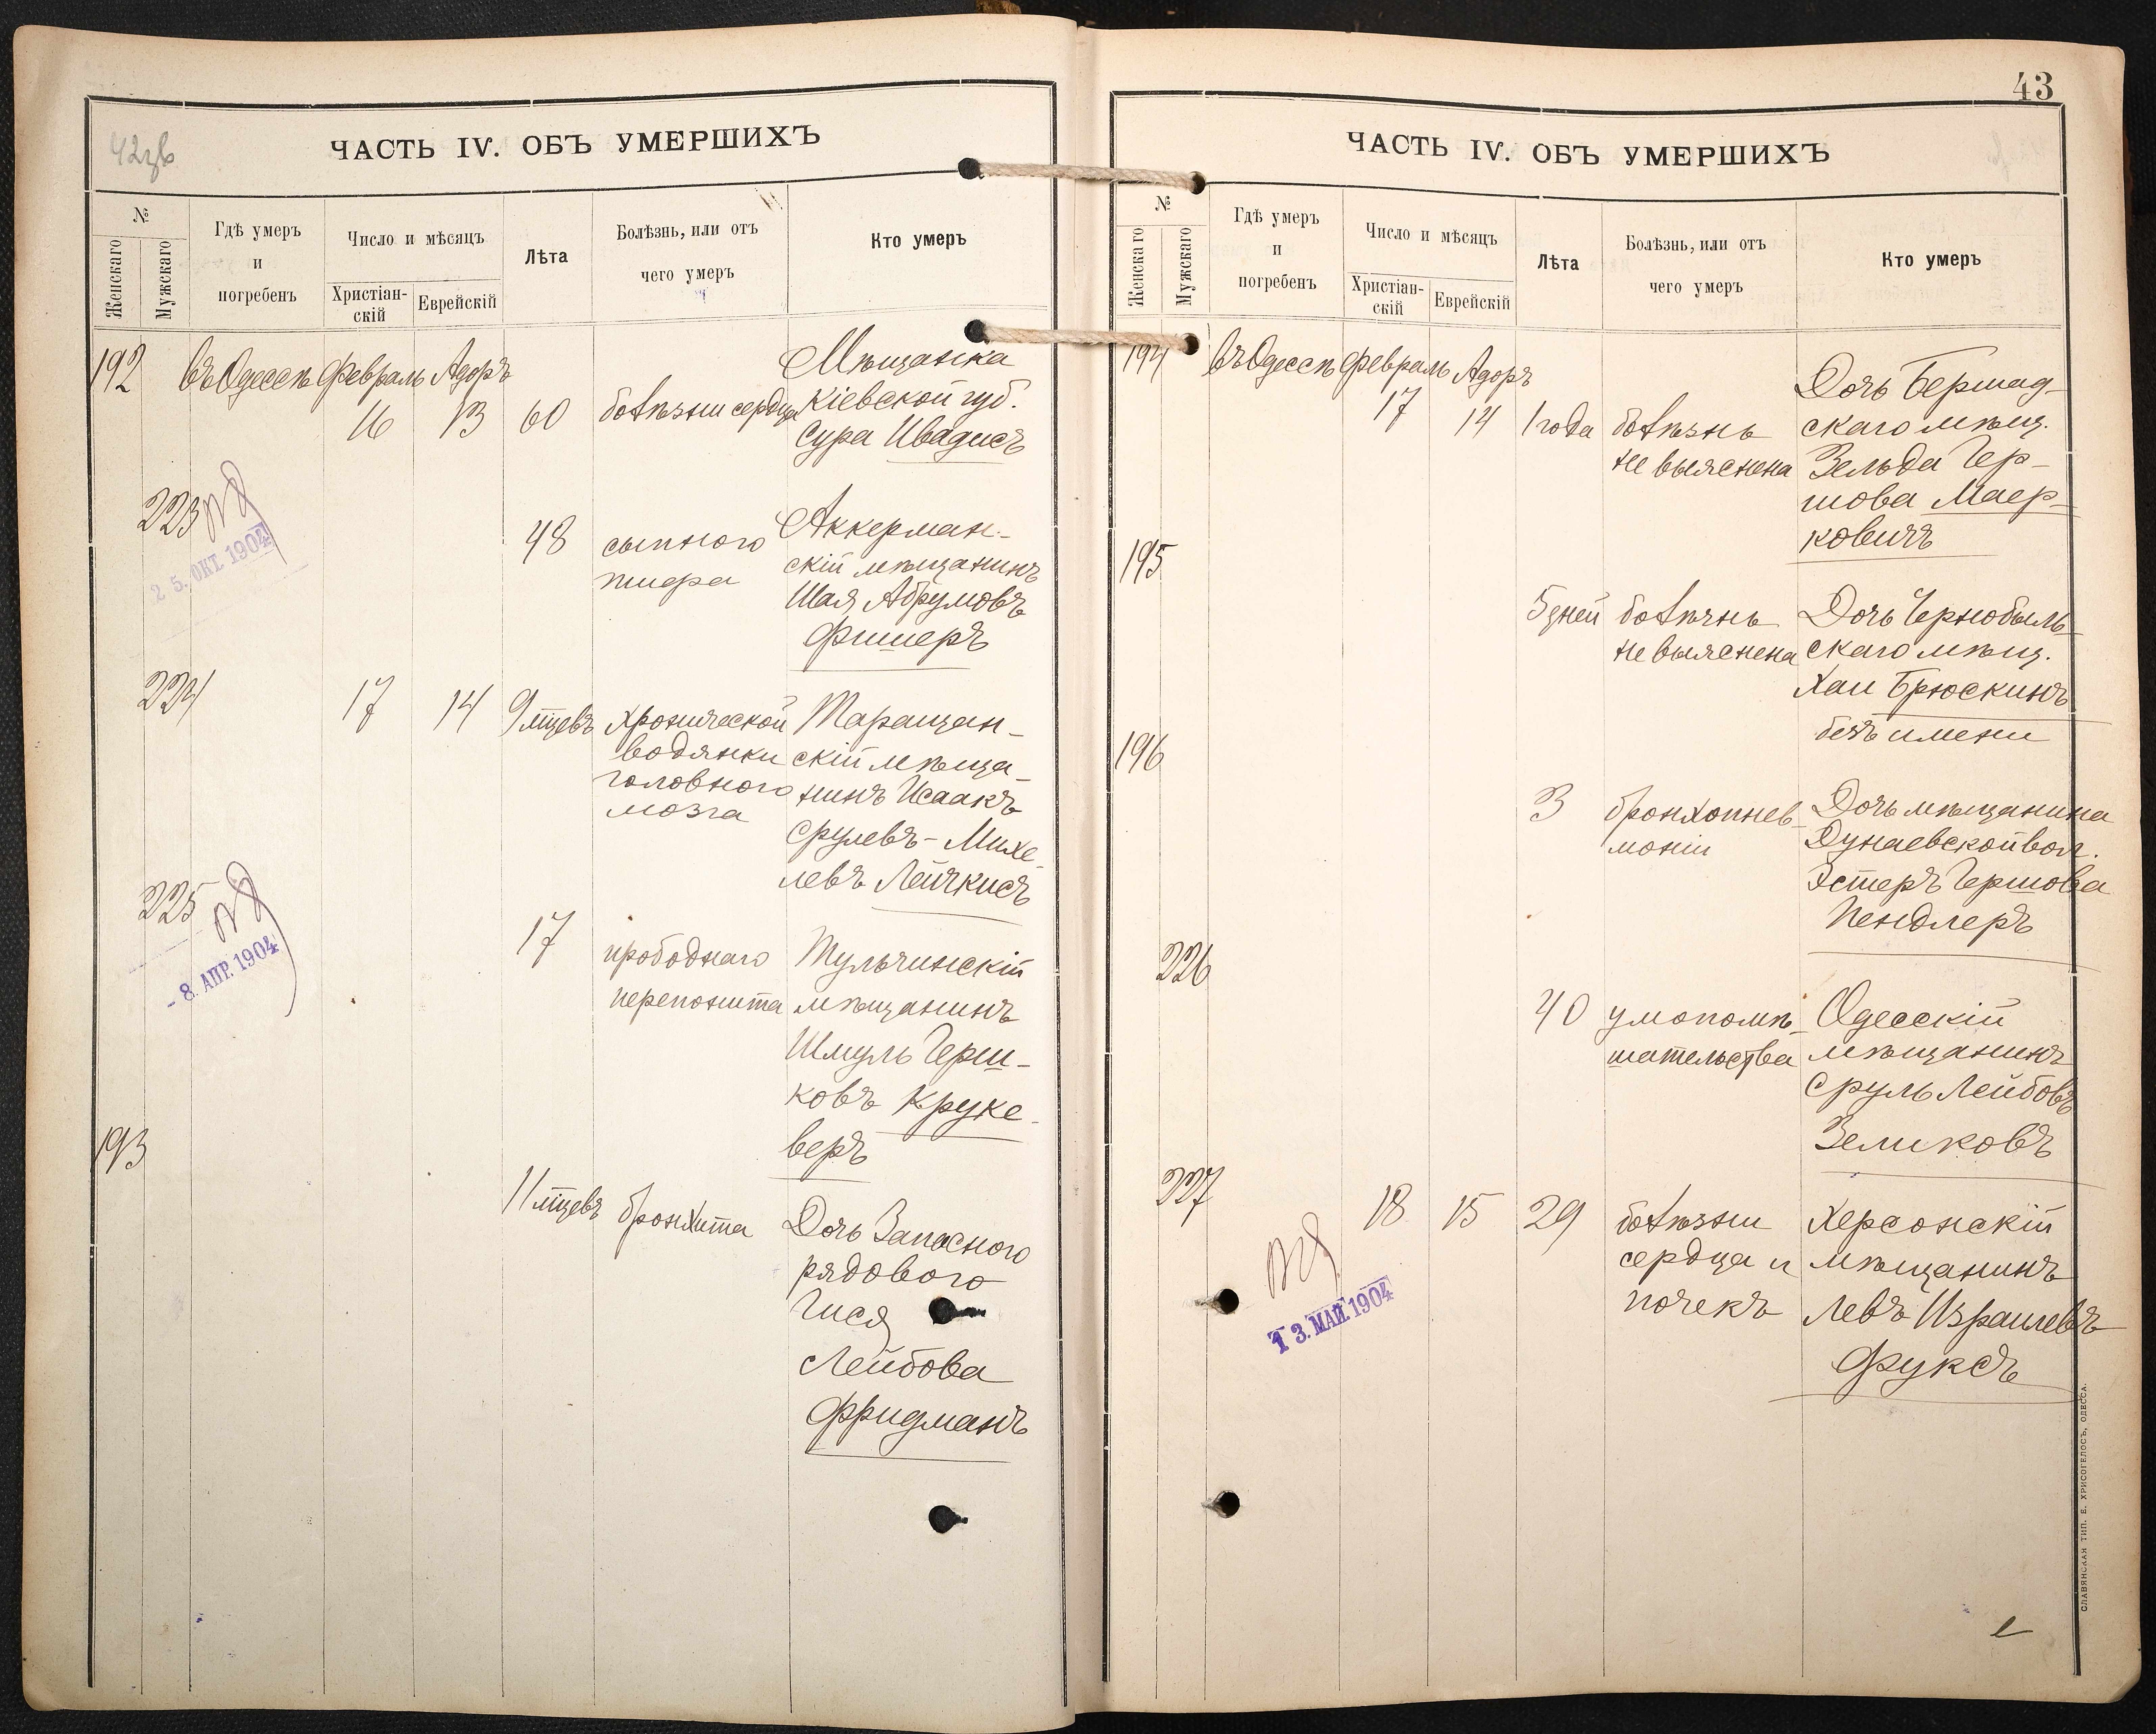 42зв
ЧАСТЬ IV. ОБЪ УМЕРШИХЪ
№
Женскаго
Мужскаго
Гдѣ умеръ
и
погребенъ
Число и мѣсяцъ
Христіан-
скій
Еврейскій
Лѣта
Болѣзнь, или отъ
чего умеръ
Кто умеръ
192 въ Одессѣ Февраль Адоръ
16 13 60 болѣзни сердца
Мѣщанка
Кіевской губ.
Сура Ивадисъ
223
25. ОКТ. 1904
48 сыпного
тифа
Аккерман-
скій мѣщанинъ
Шая Абрумовъ
Фишеръ
224 17 14 9 мѣсяцевъ
хронической
водянки
головного
мозга
Таращан-
скій мѣща-
нинъ Исаакъ
Срулевъ-Михе-
левъ Лейчкисъ
225
- 8. АПР. 1904
17 прободнаго
перетонита
Тульчинскій
мѣщанинъ
Шмуль Герш-
ковъ Круке-
веръ
193
11 мѣсяцевъ бронхита
Дочь Запасного
рядового
Гися
Лейбова
Фридманъ
43
ЧАСТЬ IV. ОБЪ УМЕРШИХЪ
№
Женскаго
Мужскаго
Гдѣ умеръ
и
погребенъ
Число и мѣсяцъ
Христіан-
скій
Еврейскій
Лѣта
Болѣзнь, или отъ
чего умеръ
Кто умеръ
194 въ Одессѣ Февраль Адоръ
17 14 1 года болѣзнь
не выяснена
Дочь Бершад-
скаго мѣщ.
Зельда Гер-
шова Маер-
ковичъ
195
5 дней болѣзнь
не выяснена
Дочь Чернобыль-
скаго мѣщ.
Хаи Брюскинъ
безъ имени
196
3 бронхопнев-
моніи
Дочь мѣщанина
Дунаевской вол.
Эстеръ Гершова
Пендлеръ
226
40 умопомѣ-
шательства
Одесскій
мѣщанинъ
Сруль Лейбовъ
Зеликовъ
227
13. МАЙ 1904
18 15 29 болѣзни
сердца и
почекъ
Херсонскій
мѣщанинъ
Левъ Израилевъ
Фуксъ
СЛАВЯНСКАЯ ТИП. Е. ХРИСОГЕЛОСЪ, ОДЕССА.